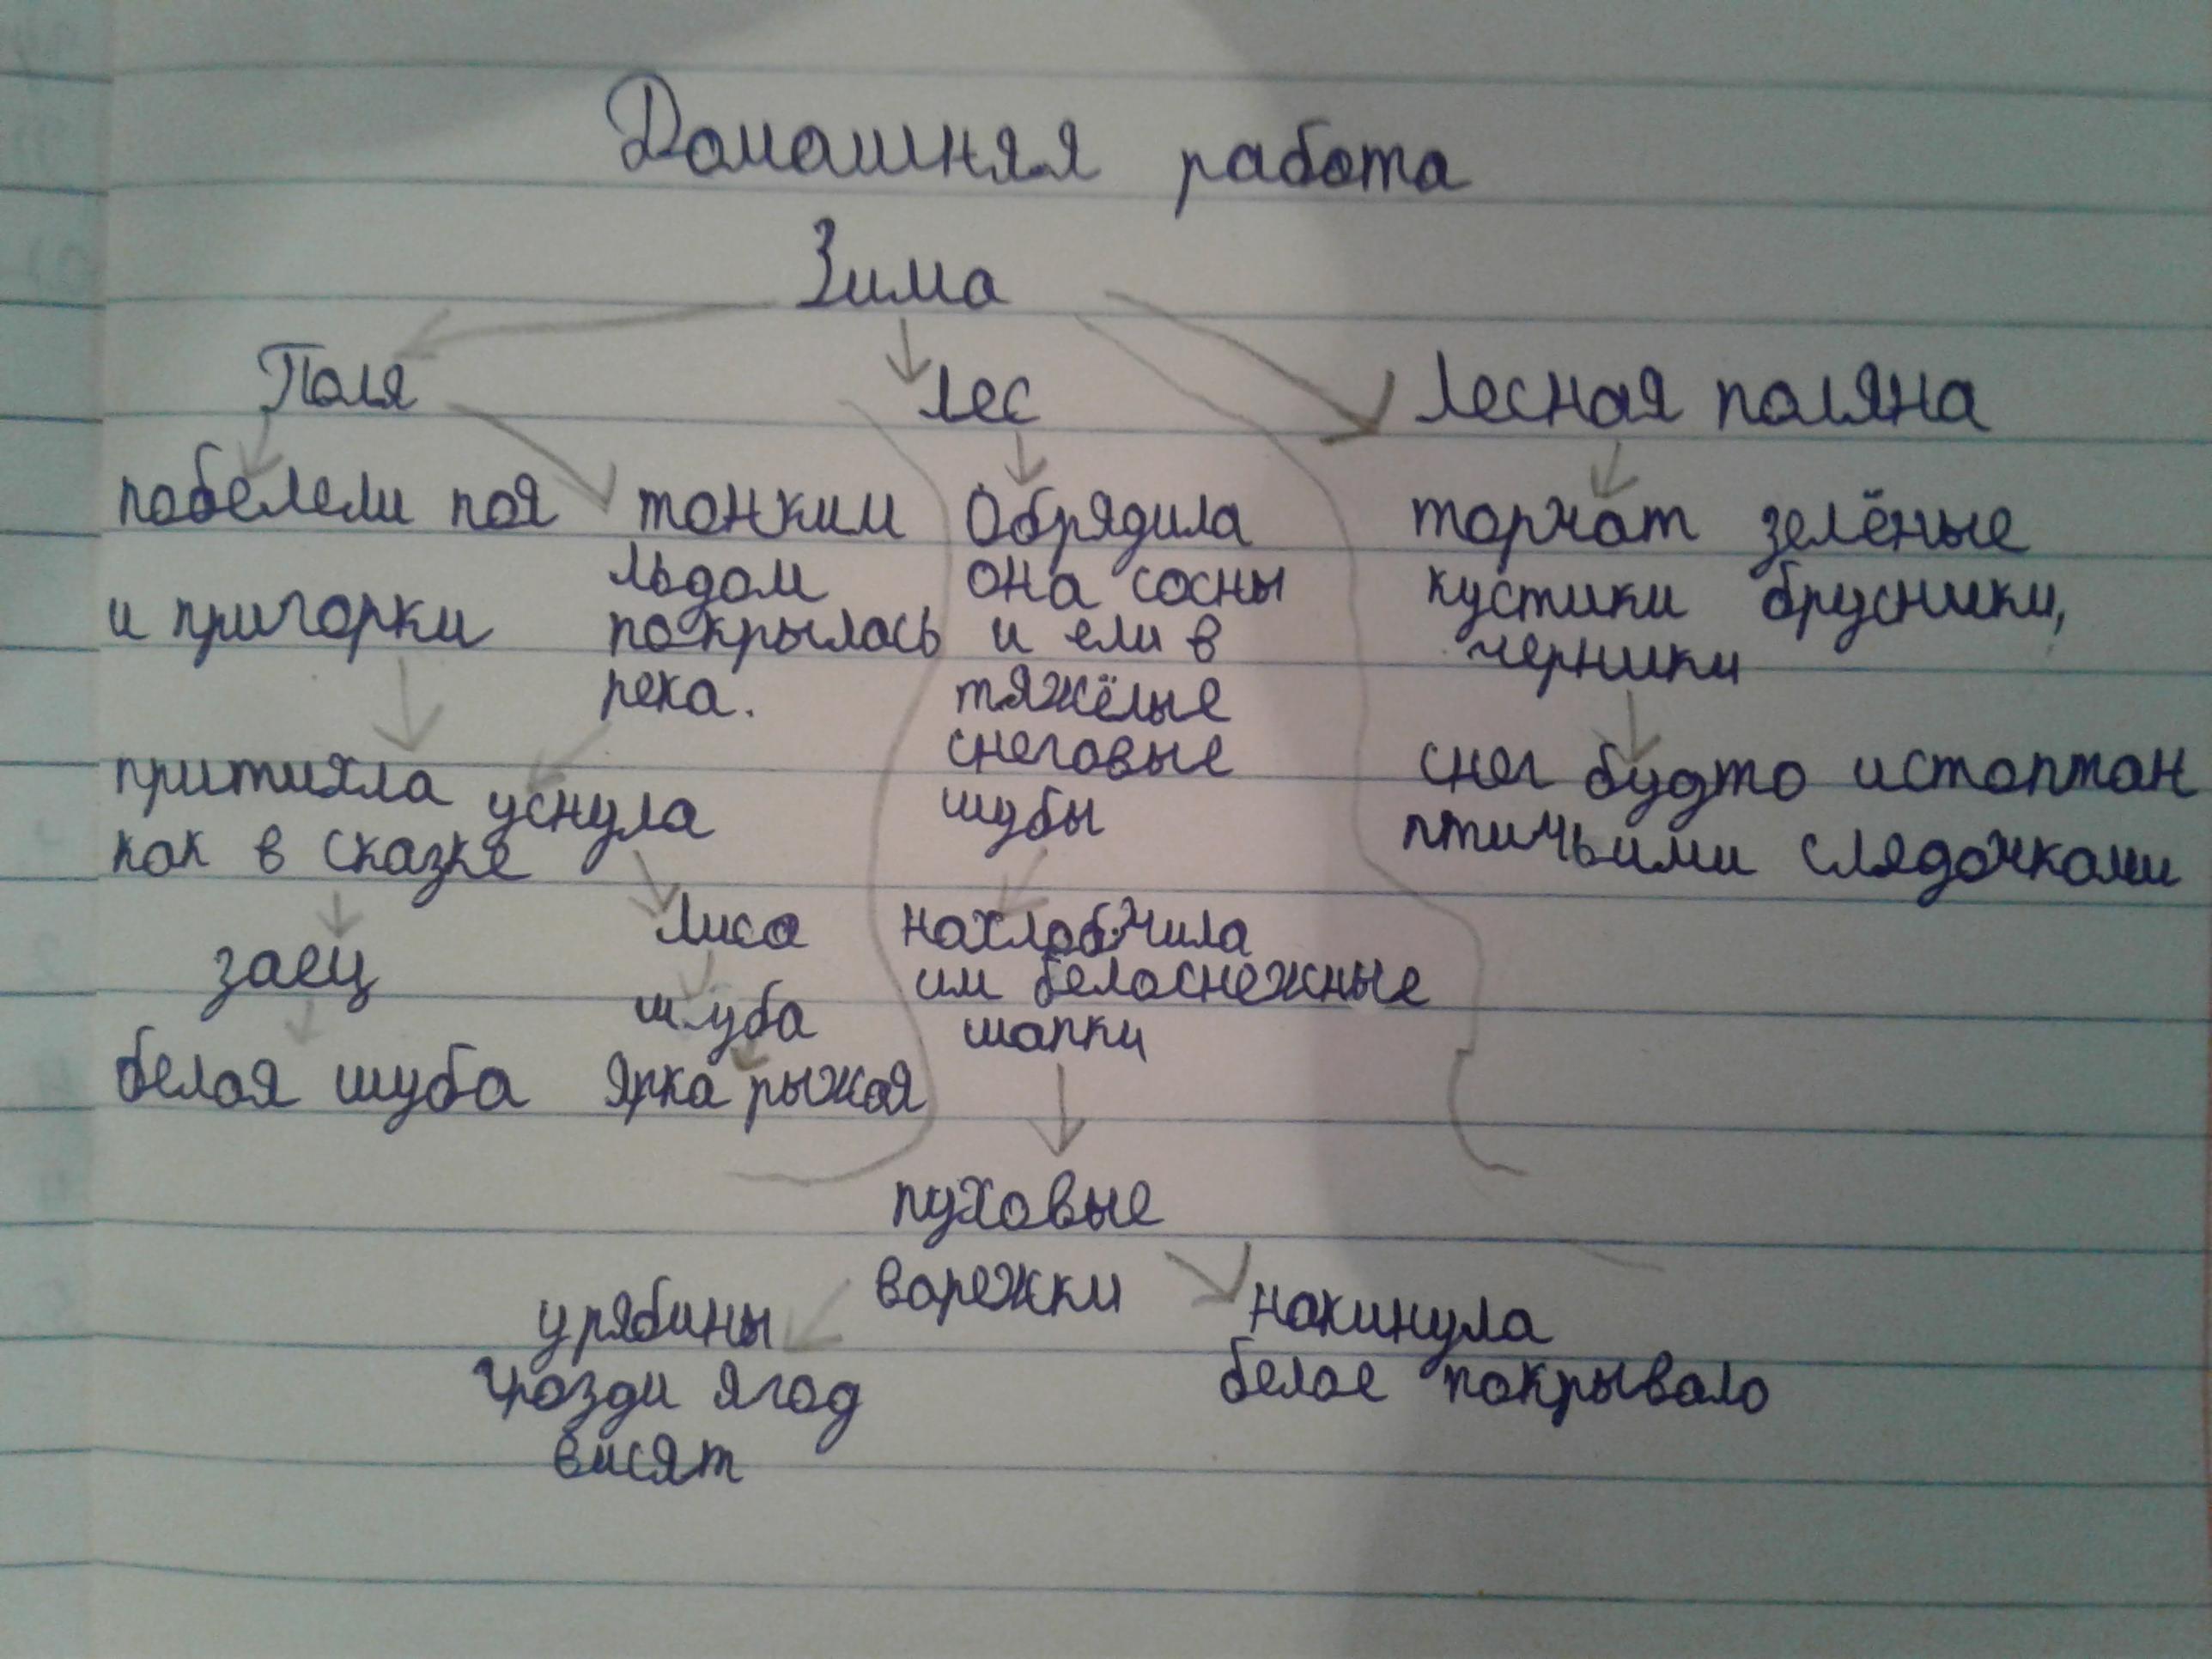 Домашняя работа
Зима
Поля
Лес
Лесная поляна
побелели поя
и пригорки
притихла
как в сказке
заец
белая шуба
тонким
льдом
покрылась
река.
уснула
Лиса
шуба
Ярка рыжая
Обрядила
она сосны
и ели в
тяжёлые
снеговые
шубы
нахлобучила
им белоснежные
шапки
пуховые
варежки
у рябины
грозди ягод
висят
накинула
белое покрывало
торчат зелёные
кустики брусники,
черники
снег будто истоптан
птичьими слядочками